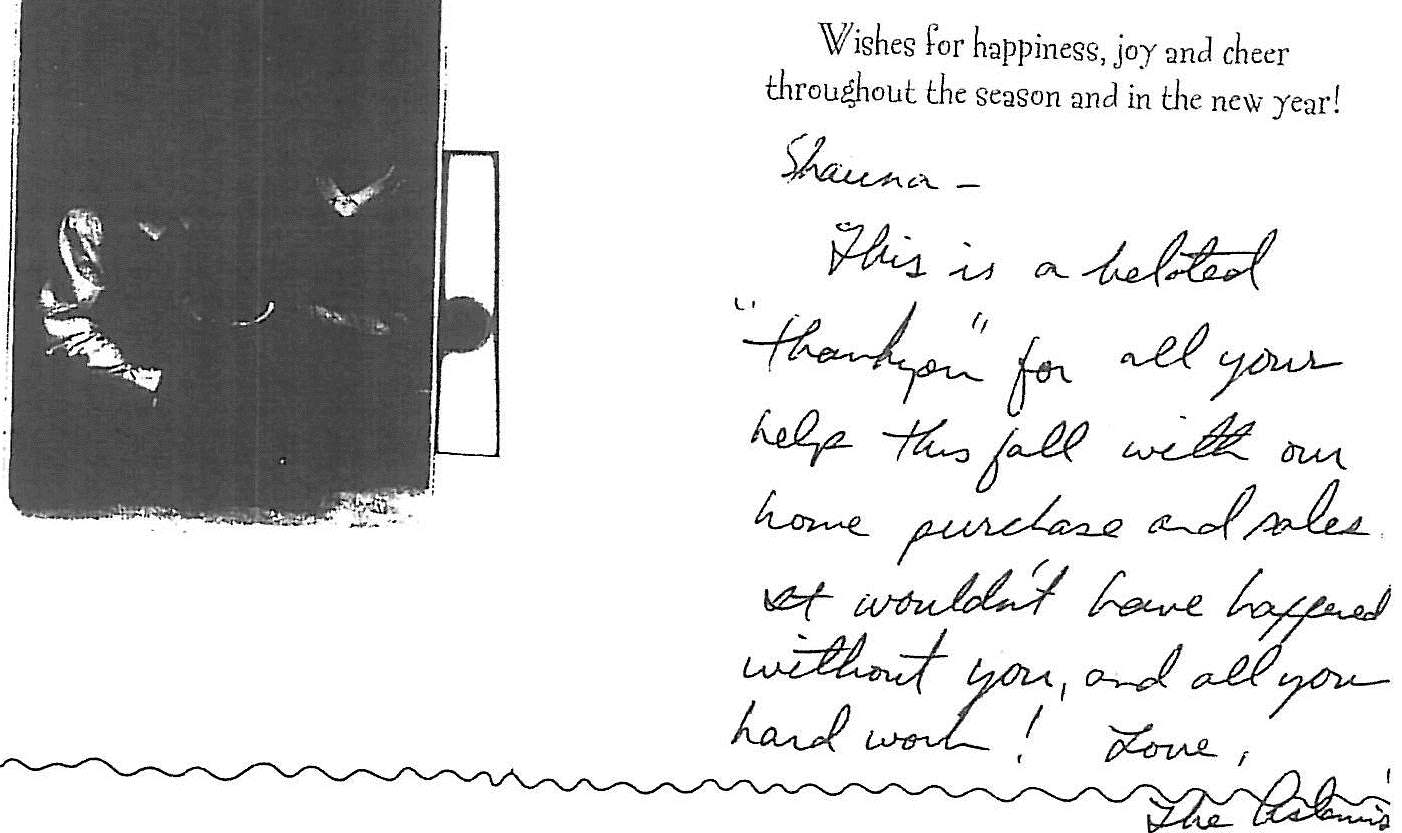 Wishes for happiness, joy and cheer
throughout the season and in the new year!
Shauna –
This is a belated
"thankyou" for all your
help this fall with our
home purchase and sales.
It wouldn't have happened
without you, and all you
hard work! Love,
The